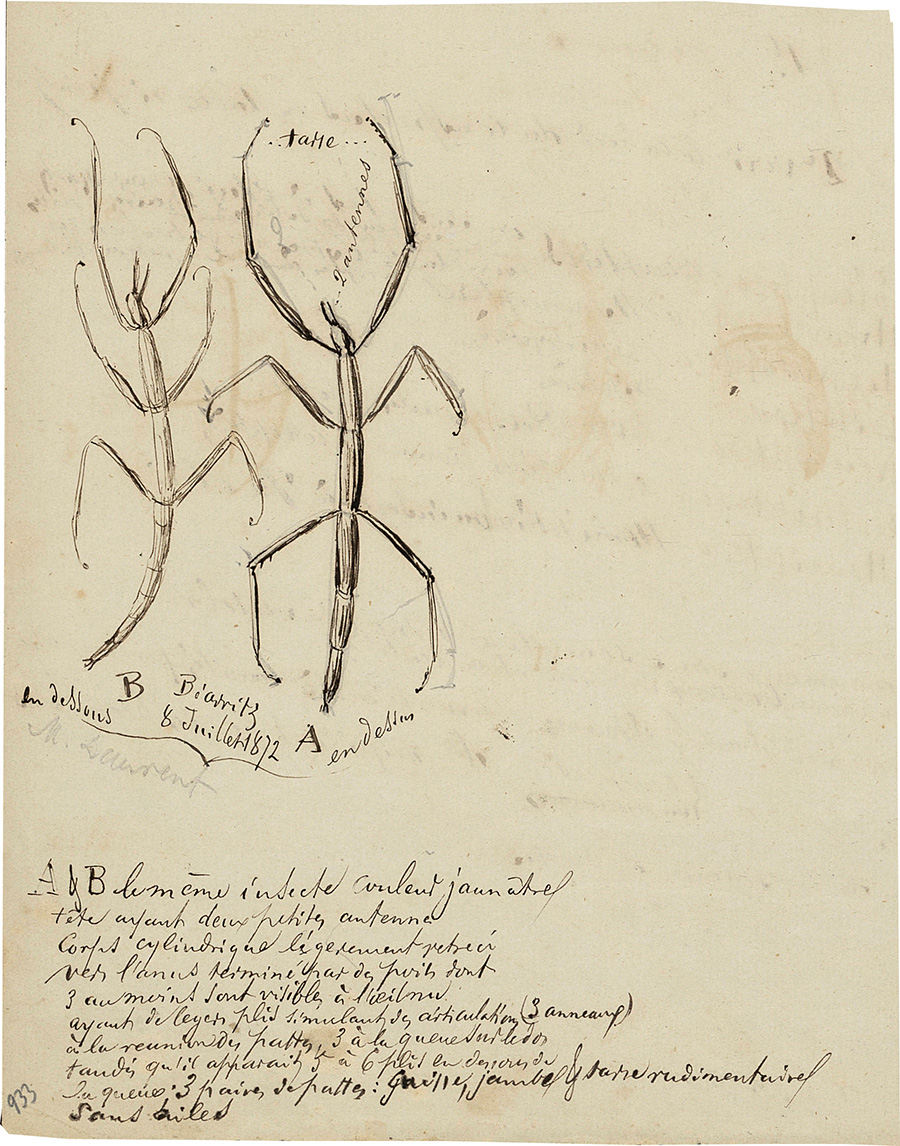 .. tarse ...
... 2 antennes
en dessous
B
Béarritz
8 Juillet 1872
A
en dessus
M. Laurent
A & B le même insecte couleur jaunâtre
tête ayant deux petites antenne
Corps cylindrique légerement retreci
vers l'anus terminé par des poils dont
3 au moins sont visibles à l'œil nu.
ayant de legers plis simulant des articulations (3 anneaux)
à la reunion des pattes, 3 à la queue sur le dos
tandis qu'il apparait 5 à 6 plis en dessous de
la queue; 3 paires de pattes: Cuisse, jambe & tarse rudimentaire
Sans ailes
933